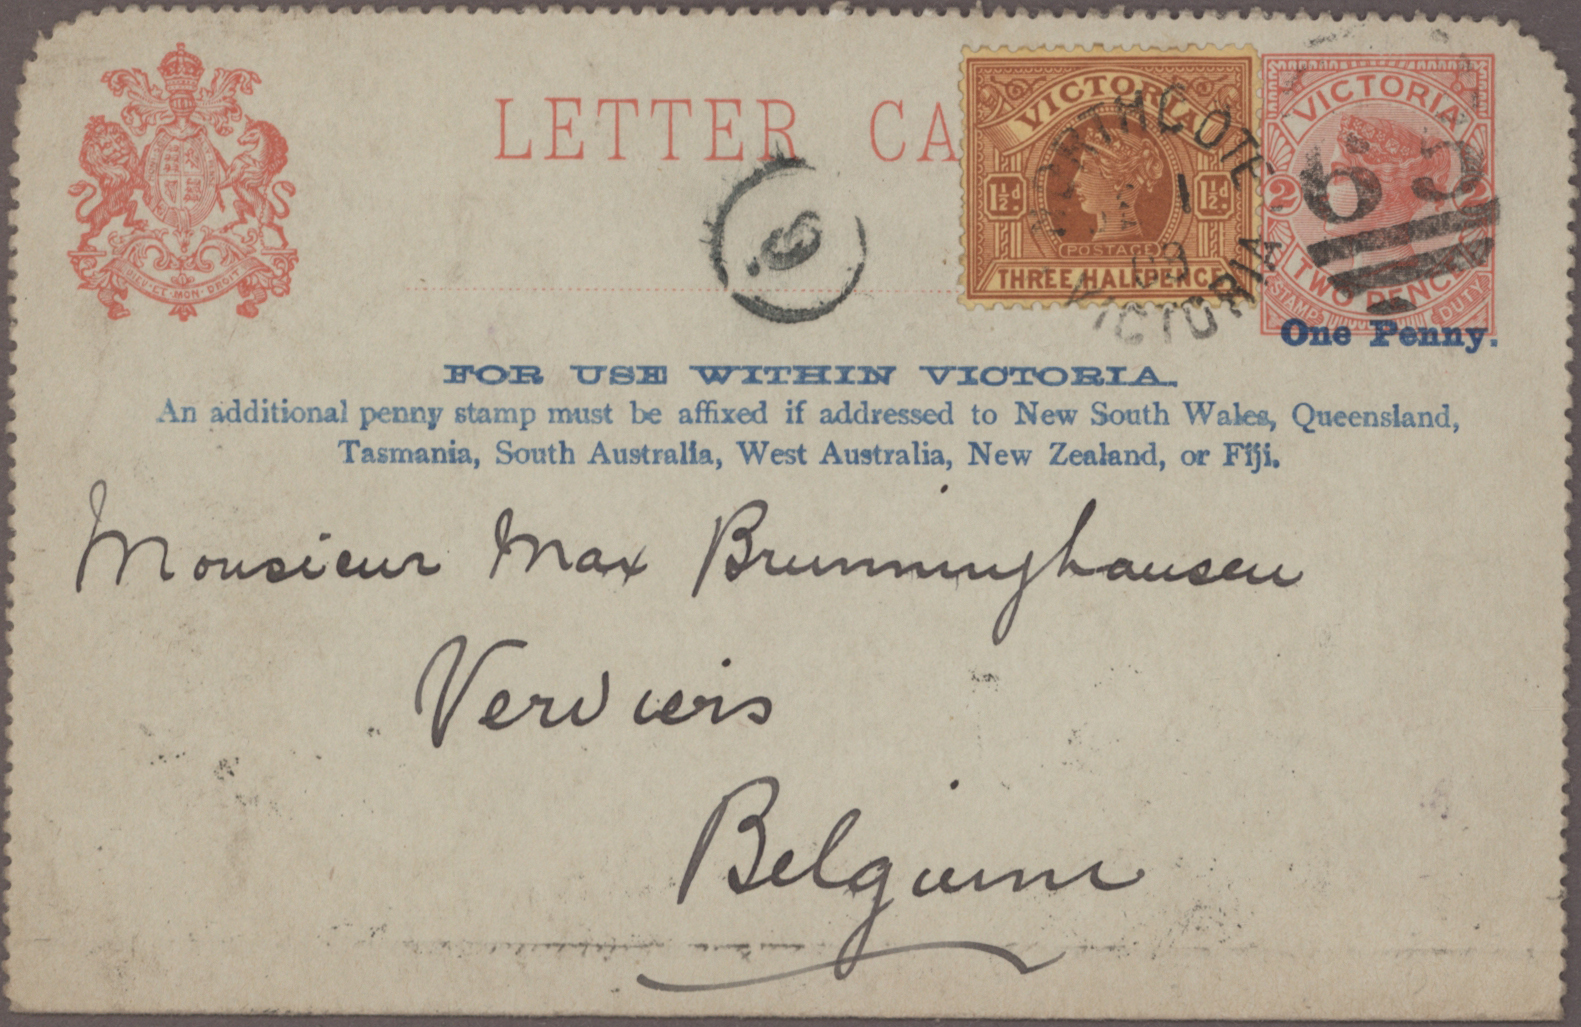 LETTER CA
DIEU·ET·MON·DROIT
VICTORIA
1½d 1½d
POSTAGE
THREE HALFPENCE
VICTORIA
2 2
TWO PENCE
STAMP DUTY
One Penny.
NORTHCOTE
1
09
VICTORIA
FOR USE WITHIN VICTORIA.
An additional penny stamp must be affixed if addressed to New South Wales, Queensland,
Tasmania, South Australia, West Australia, New Zealand, or Fiji.
Monsieur Max Brunninghausen
Verviers
Belgium